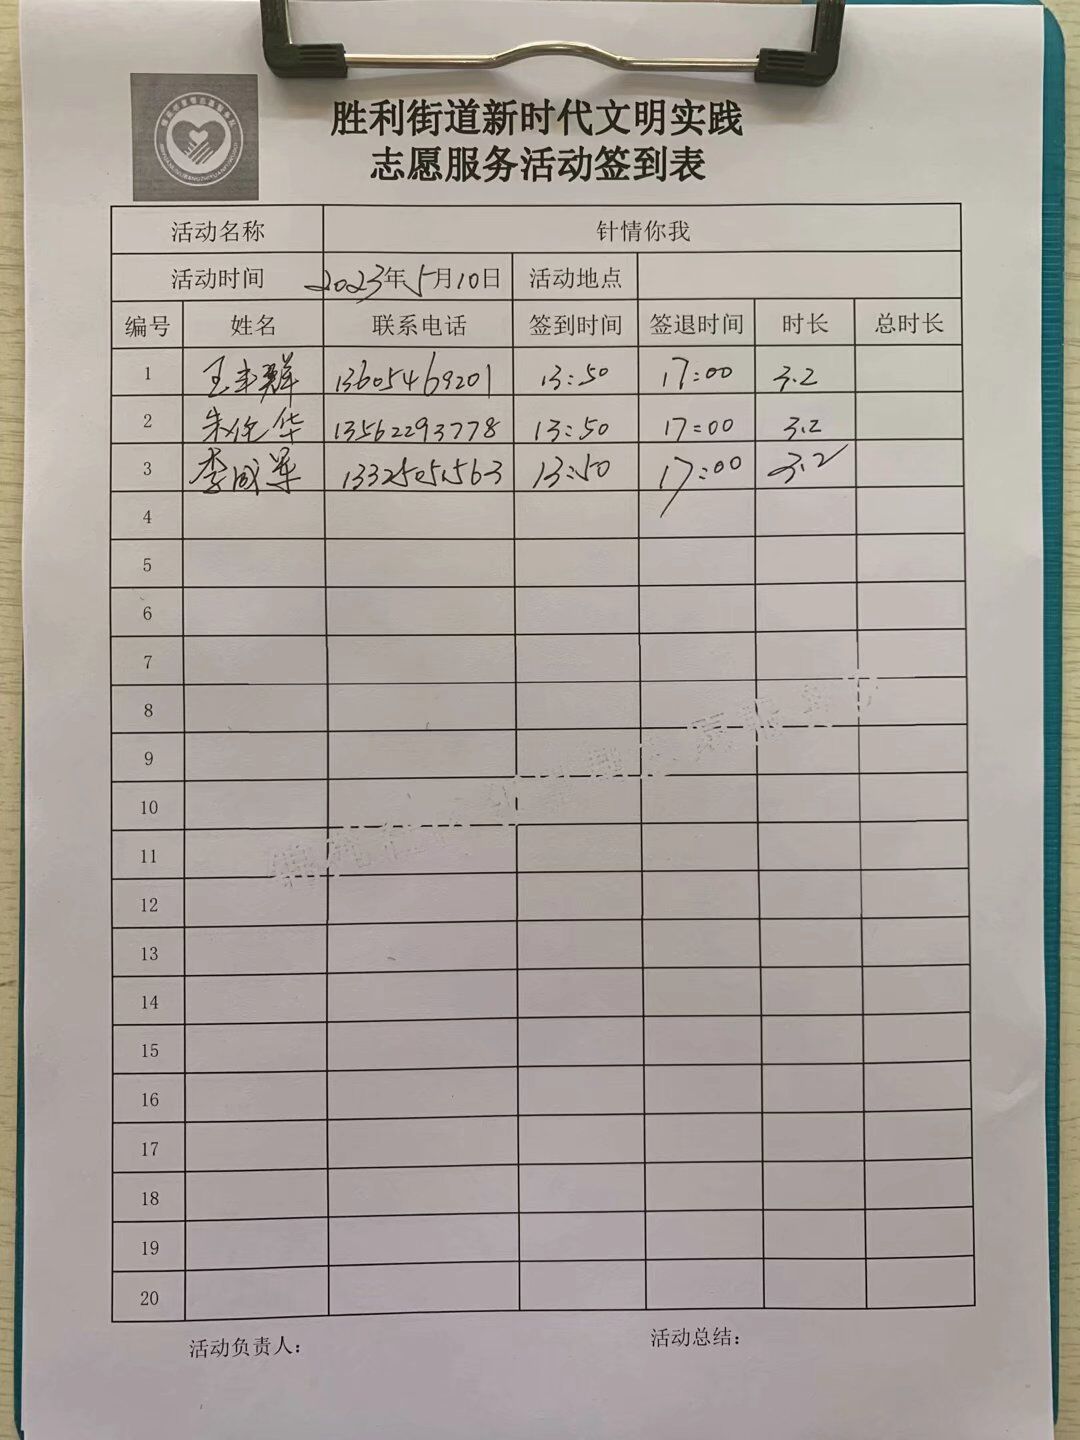 胜利街道新时代文明实践
志愿服务活动签到表
活动名称 针情你我
活动时间 2023年5月10日 活动地点
编号 姓名 联系电话 签到时间 签退时间 时长 总时长
1 王丰群 13605469201 13:50 17:00 3.2
2 朱化华 13562293778 13:50 17:00 3.2
3 李成军 13325051563 13:50 17:00 3.2
4
5
6
7
8
9
10
11
12
13
14
15
16
17
18
19
20
活动负责人： 活动总结：